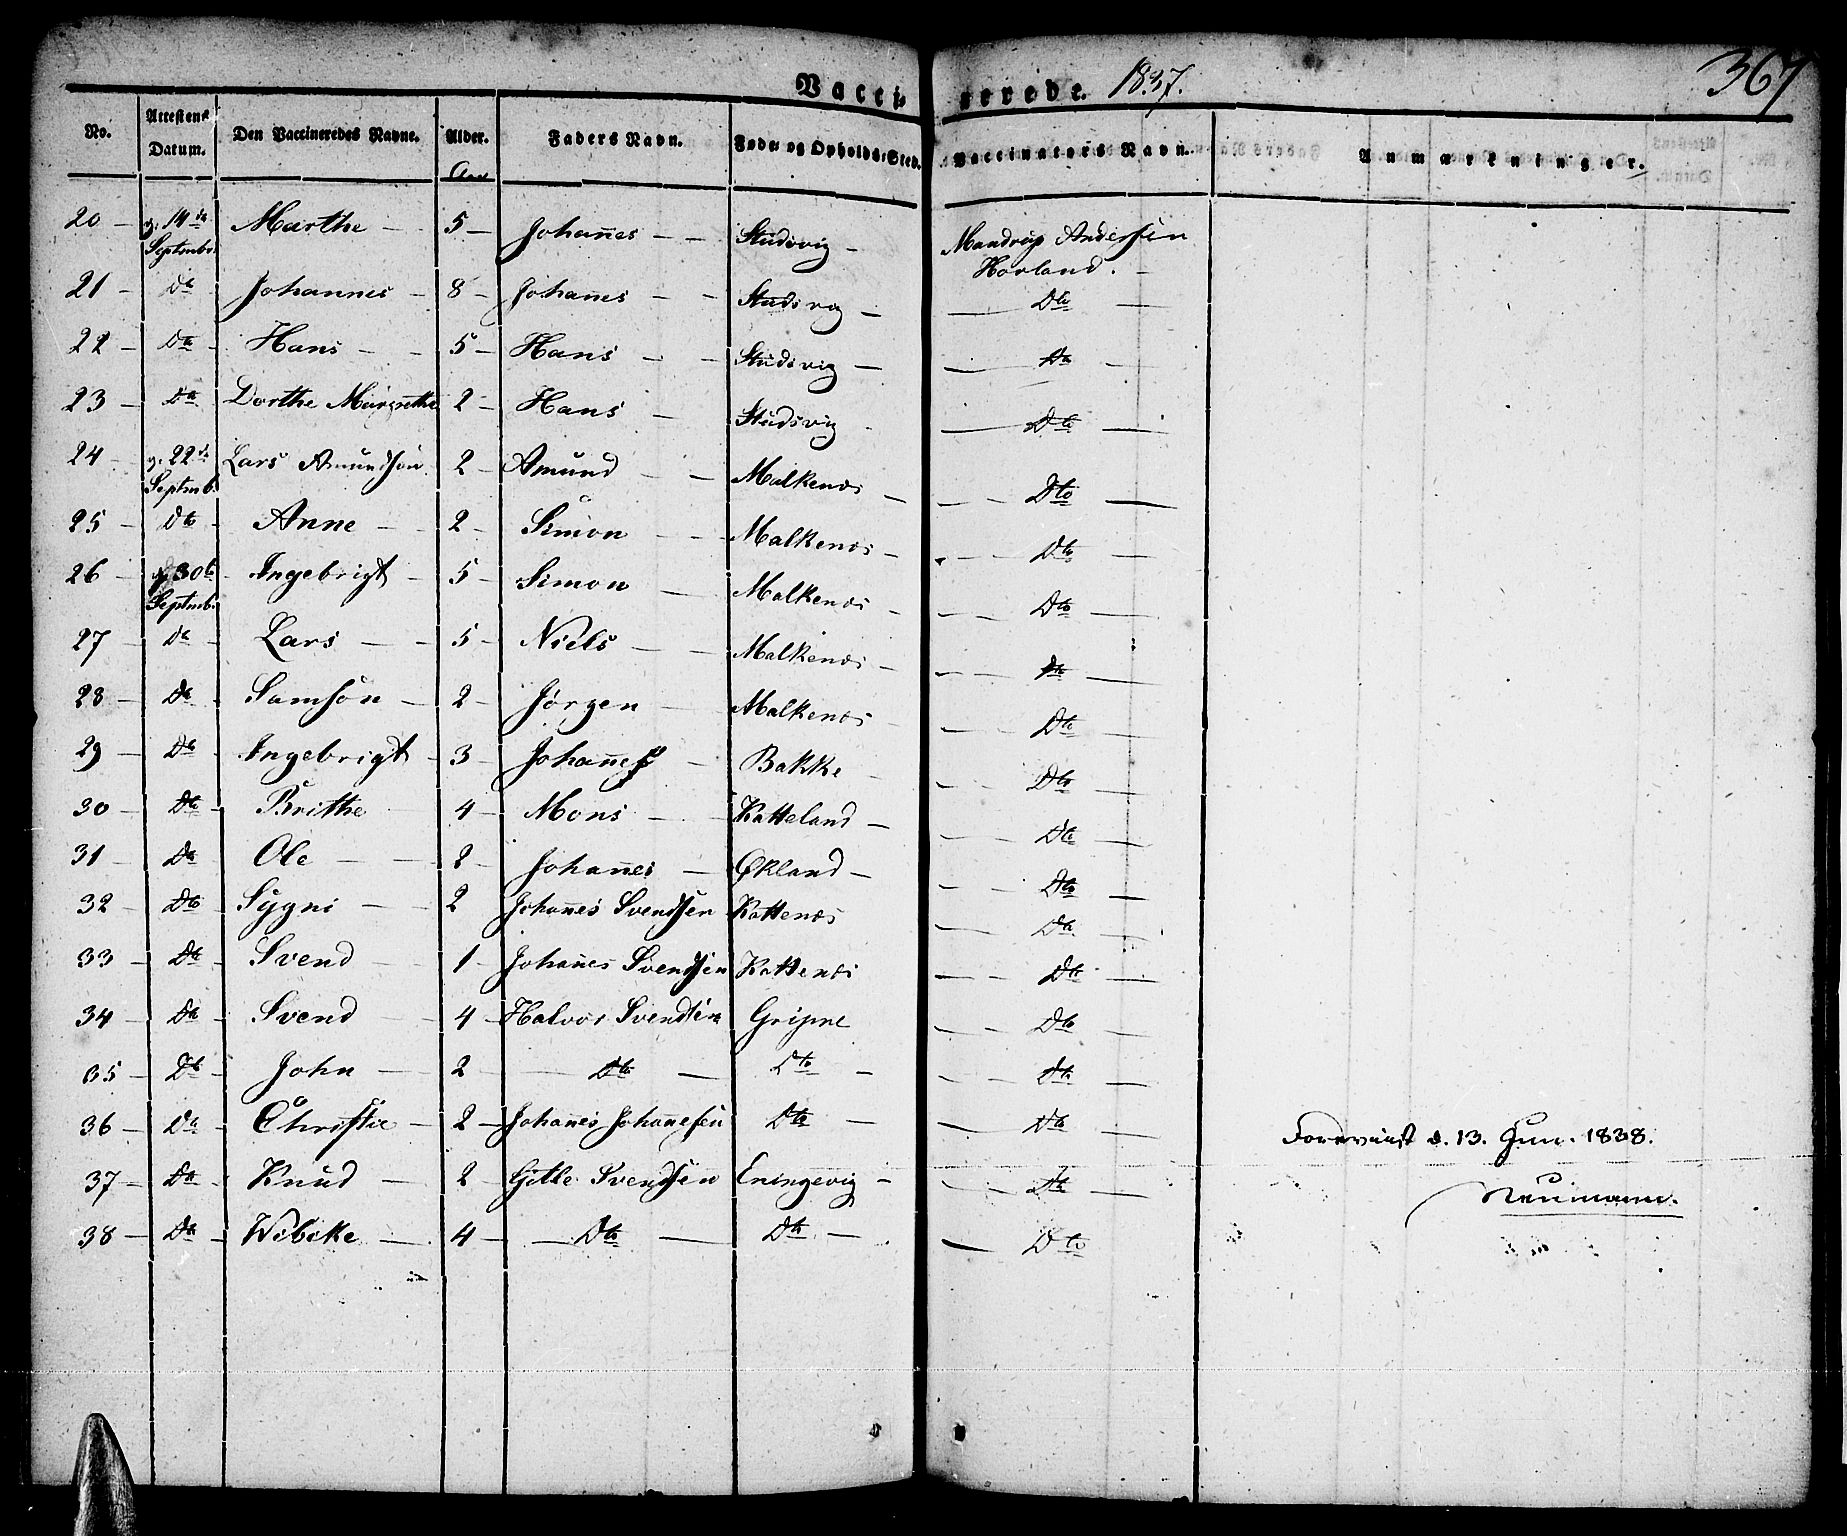 Vacci- nerede. 1837. 367
No. Attestens Datum. Den Vaccineredes Navne. Alder. Faders Navn. Føde- og Opholds-Sted. Vaccinators Navn. Anmærkninger.
Aar
20 — 14de Septembr. Marthe — 5 — Johañes — — Studsvig — Mandrup Andersen Horland. —
21 — Do Johannes — 8 — Johañes — — Studsvig — — Dto —
22 — Do — Hans — — 5 — Hans — — Studsvig — — Do —
23 — Do Dorthe Margrethe 2 — Hans — Studsvig — — Dto —
24 22de Septmb. Lars Amundsøn 2 — Amund — — Malkenæs — — — Dto —
25 — Dto — Anne — — 2 — Simon — — Malkenæs — — — Dto —
26 — 30te Septmb. Ingebrigt — 5 — Simon — Malkenæs — — — Dto —
27 — Do — Lars — — 5 — Niels — — Malkenæs — — — Do —
28 — Do — Samson — 2 — Jørgen — Malkenæs — — — Dto —
29 — Do — Ingebrigt — 3 — Johañes — Bakke — — — Dto —
30 — Do — Brithe 4 — Mons — Katteland — — — Dto —
31 — Do — Ole — — 2 — Johañes — Økland — — — Dto —
32 — Do — Sygni — — 2 Johañes Svendsen Kattenæs — — Do —
33 — Do — Svend — 1 — Johañes Svendsen Kattenæs — — Do —
34 — Do — Svend — 4 — Halvor Svendsen Gripne — — Do —
35 — Do — John — 2 — — Dto — Dto — — — Do —
36 — Do — Christie — 2 — Johañes Johañesen Dto — — — Do —
37 — Do — Knud — 2 — Gitle Svendsen Eningevig — — — Do —
38 — Do — Wibeke — 4 — — Dto — Do — — Dto
Foreviist d. 13. Jun. 1838.
Neumann.